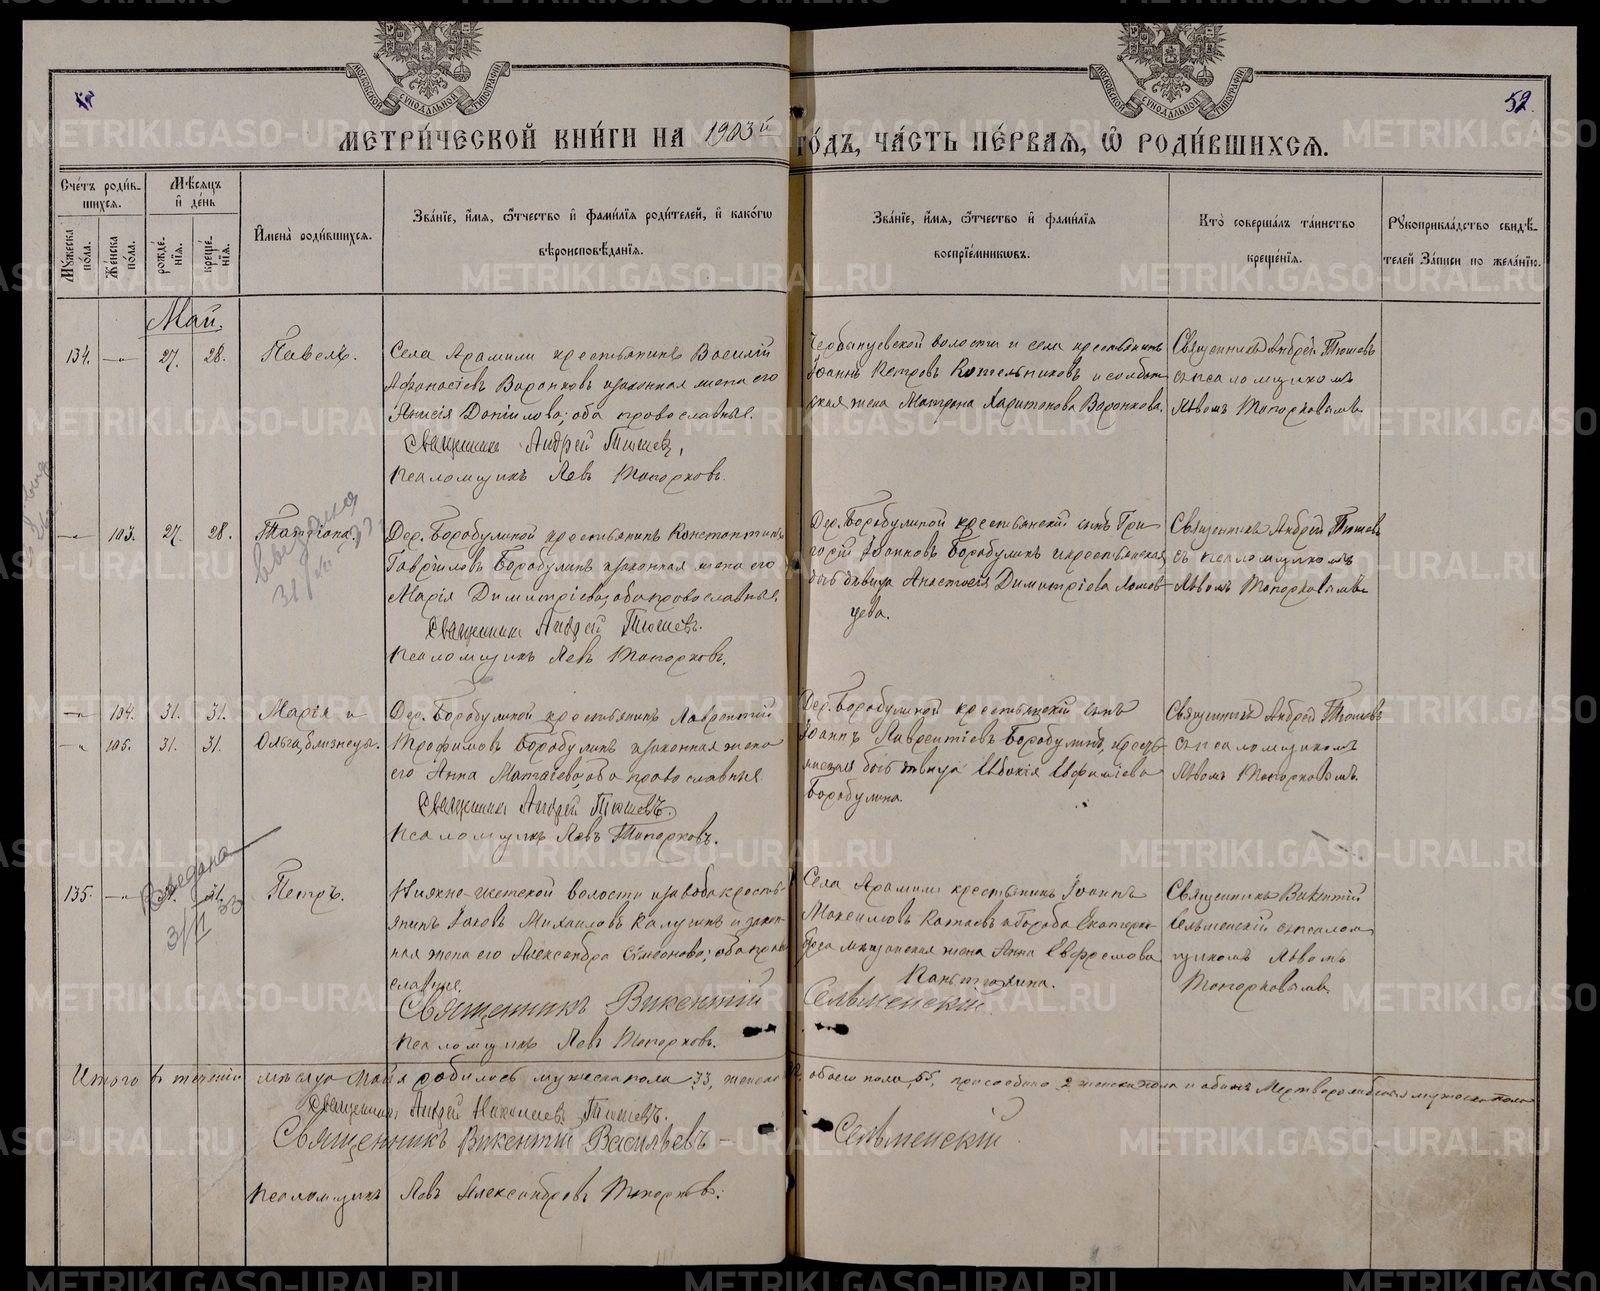 52.
МЕТРИ́ЧЕСКОЙ КНИ́ГИ НА 1903й ГО́ДЪ, ЧА́СТЬ ПЕ́РВАѦ, Ѽ РОДИ́ВШИХСѦ.
МОСКОВСКОЙ СѴНОДАЛЬНОЙ ТИПОГРАФІИ
МОСКОВСКОЙ СѴНОДАЛЬНОЙ ТИПОГРАФІИ
Сче́тъ роди́вшихсѧ.
Мꙋ́жеска по́ла.
Же́нска по́ла.
Мѣ́сѧцъ и҆ де́нь
рожде́нїѧ.
креще́нїѧ.
И҆мена̀ роди́вшихсѧ.
Зва́нїе, и҆́мѧ, ѻ҆́тчество и҆ фами́лїѧ роди́телей, и҆ како́гѡ
вѣроисповѣ́данїѧ.
Зва́нїе, и҆́мѧ, ѻ҆́тчество и҆ фами́лїѧ
воспрїе́мникѡвъ.
Кто̀ соверша́лъ та́инство
креще́нїѧ.
Рꙋкоприкла́дство свидѣ́-
телей За́писи по жела́нїю.
Май.
134. 27. 28. Павелъ.
Села Арамили крестьянинъ Василій
Афанасіевъ Воронковъ и законная жена его
Анисія Даніилова; оба православные.
Священникъ Андрей Тюшевъ,
Псаломщикъ Левъ Топорковъ.
волости и села крестьянинъ
Іоаннъ Петровъ Котельниковъ и солдат-
ская жена Матрона Харитонова Воронкова.
Священникъ Андрей Тюшевъ
съ псаломщикомъ
Львомъ Топорковымъ.
103. 27. 28. Татіана.
Дер. Бородулиной крестьянинъ Константинъ
Гавріиловъ Бородулинъ и законная жена его
Марія Димитріева; оба православные.
Священникъ Андрей Тюшевъ.
Псаломщикъ Левъ Топорковъ.
Дер. Бородулиной крестьянскій сынъ Гри-
горій Іоанновъ Бородулинъ и крестьянская
дочь дѣвица Анастасія Димитріева Ломов-
цева.
Священникъ Андрей Тюшевъ
съ псаломщикомъ
Львомъ Топорковымъ.
104. 31. 31. Марія и
105. 31. 31. Ольга, близнецы.
Дер. Бородулиной крестьянинъ Лаврентій
Трофимовъ Бородулинъ и законная жена
его Анна Матѳіева; оба православные.
Священникъ Андрей Тюшевъ.
Псаломщикъ Левъ Топорковъ.
Дер. Бородулиной крестьянскій сынъ
Іоаннъ Лаврентіевъ Бородулинъ, кресть-
янская дочь дѣвица Евдокія Евфиміева
Бородулина.
Священникъ Андрей Тюшевъ
съ псаломщикомъ
Львомъ Топорковымъ.
135. Петръ.
Нижне-Исетской волости и завода кресть-
янинъ Іаковъ Михаиловъ Калугинъ и закон-
ная жена его Александра Симеонова; оба право-
славные.
Священникъ Викентій Сельменскій.
Псаломщикъ Левъ Топорковъ.
Села Арамили крестьянинъ Іоаннъ
Максимовъ Катаевъ и города Екатерин-
бурга мѣщанская жена Анна Евфремова
Священникъ Викентій
Сельменскій съ псалом-
щикомъ Львомъ
Топорковымъ.
Итого въ теченіи мѣсяца Майя родилось мужеска пола 33, женска обоего пола, 55,
Священникъ Андрей Николаевъ Тюшевъ.
Священникъ Викентій Васильевъ – Сельменскій.
Псаломщикъ Левъ Александровъ Топорковъ.
METRIKI.GASO-URAL.RU